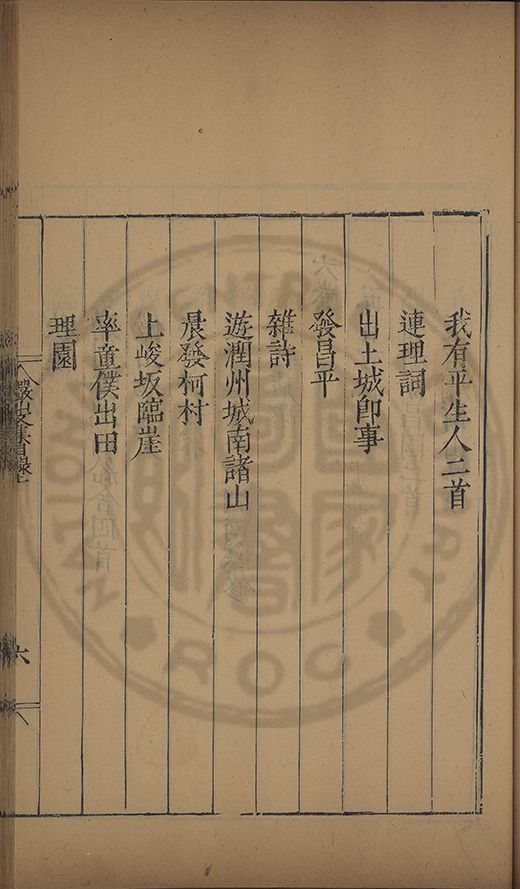 我有平生人二首
連理詞
出土城即事
發昌平
雜詩
遊潤州城南諸山
晨發柯村
上峻坂臨崖
率童僕出田
理園
六